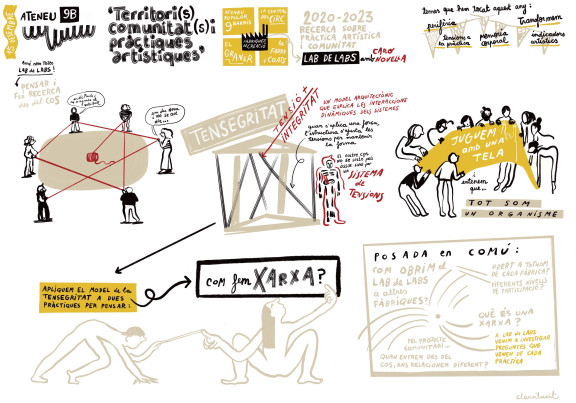 ES DIVENDRES
ATENEU 9B
'Territori(s)
comunitat(s) i
pràctiques
artístiques'
ATENEU
POPULAR
9BARRIS
LA CENTRAL
DEL CIRC
EL
GRANER
FÀBRIQUES
DE CREACIÓ
LA
FABRA
I COATS
2020-2023
RECERCA SOBRE
PRÀCTICA ARTÍSTICA
I COMUNITAT
LAB DE LABS amb CARO
NOVELLA
temes que hem tocat aquest any:
perifèria
tensions a
la pràctica
memòria
corporal
Transformem
indicadors
artístics
LAB DE LABS!
PENSAR i
Fer RECERCA
des del COS
TENSEGRITAT
TENSIÓ+
INTEGRITAT
UN MODEL ARQUITECTÒNIC
QUE EXPLICA LES INTERACCIONS
DINÀMIQUES DELS SISTEMES
quan s'aplica una força,
l'estructura ajusta les
tensions per mantenir
la forma
El nostre cos
SISTEMA
de
TENSIONS
JUGUEM
amb UNA
TELA
i entenem
que...
TOT SOM
UN ORGANISME
APLIQUEM EL MODEL de la
TENSEGRITAT A DUES
PRÀCTIQUES PER PENSAR:
COM FEM XARXA?
POSADA en COMÚ:
COM OBRIM el
LAB de LABS
a altres
FÀBRIQUES?
OBERT A TOTHOM
DE CADA FÀBRICA?
DIFERENTS NIVELLS
DE PARTICIPACIÓ?
QUÈ ÉS UNA
XARXA?
A LAB DE LABS
VENIM A INVESTIGAR
PREGUNTES QUE
VENEN DE CADA
PRÀCTICA
FEL PROJECTE
COMUNITARI...
QUAN ENTREM DES DEL
COS, ENS RELACIONEM DIFERENT?
claratavit